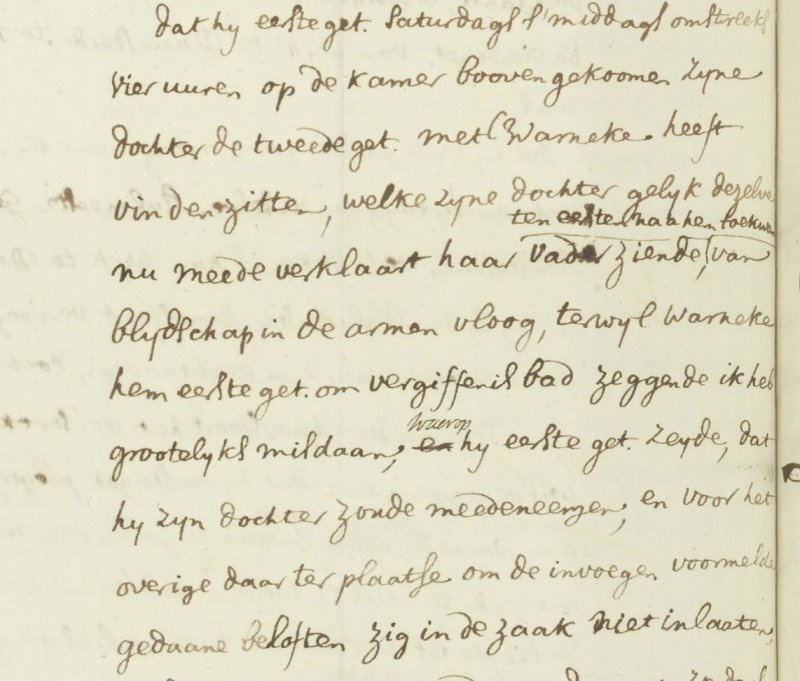 dat hy eerste get. Saturdags s' middags omstreeks
vier uuren op de kamer booven gekoomen zyne
dochter de tweede get. met Warneke heeft
vinden zitten, welke zyne dochter gelyk dezelve
ten eersten naa hem toekwam
nu meede verklaart haar vader ziende, van
blydschap in de armen vloog, terwyl Warneke
hem eerste get. om vergiffenis bad zeggende ik heb
grootelyks misdaan,
waerop
en hy eerste get. zeyde, dat
hy zyn dochter zoude meedeneemen, en voor het
overige daar ter plaatse om de invoegen voormelde
gedaane beloften zig in de zaak niet inlaaten,